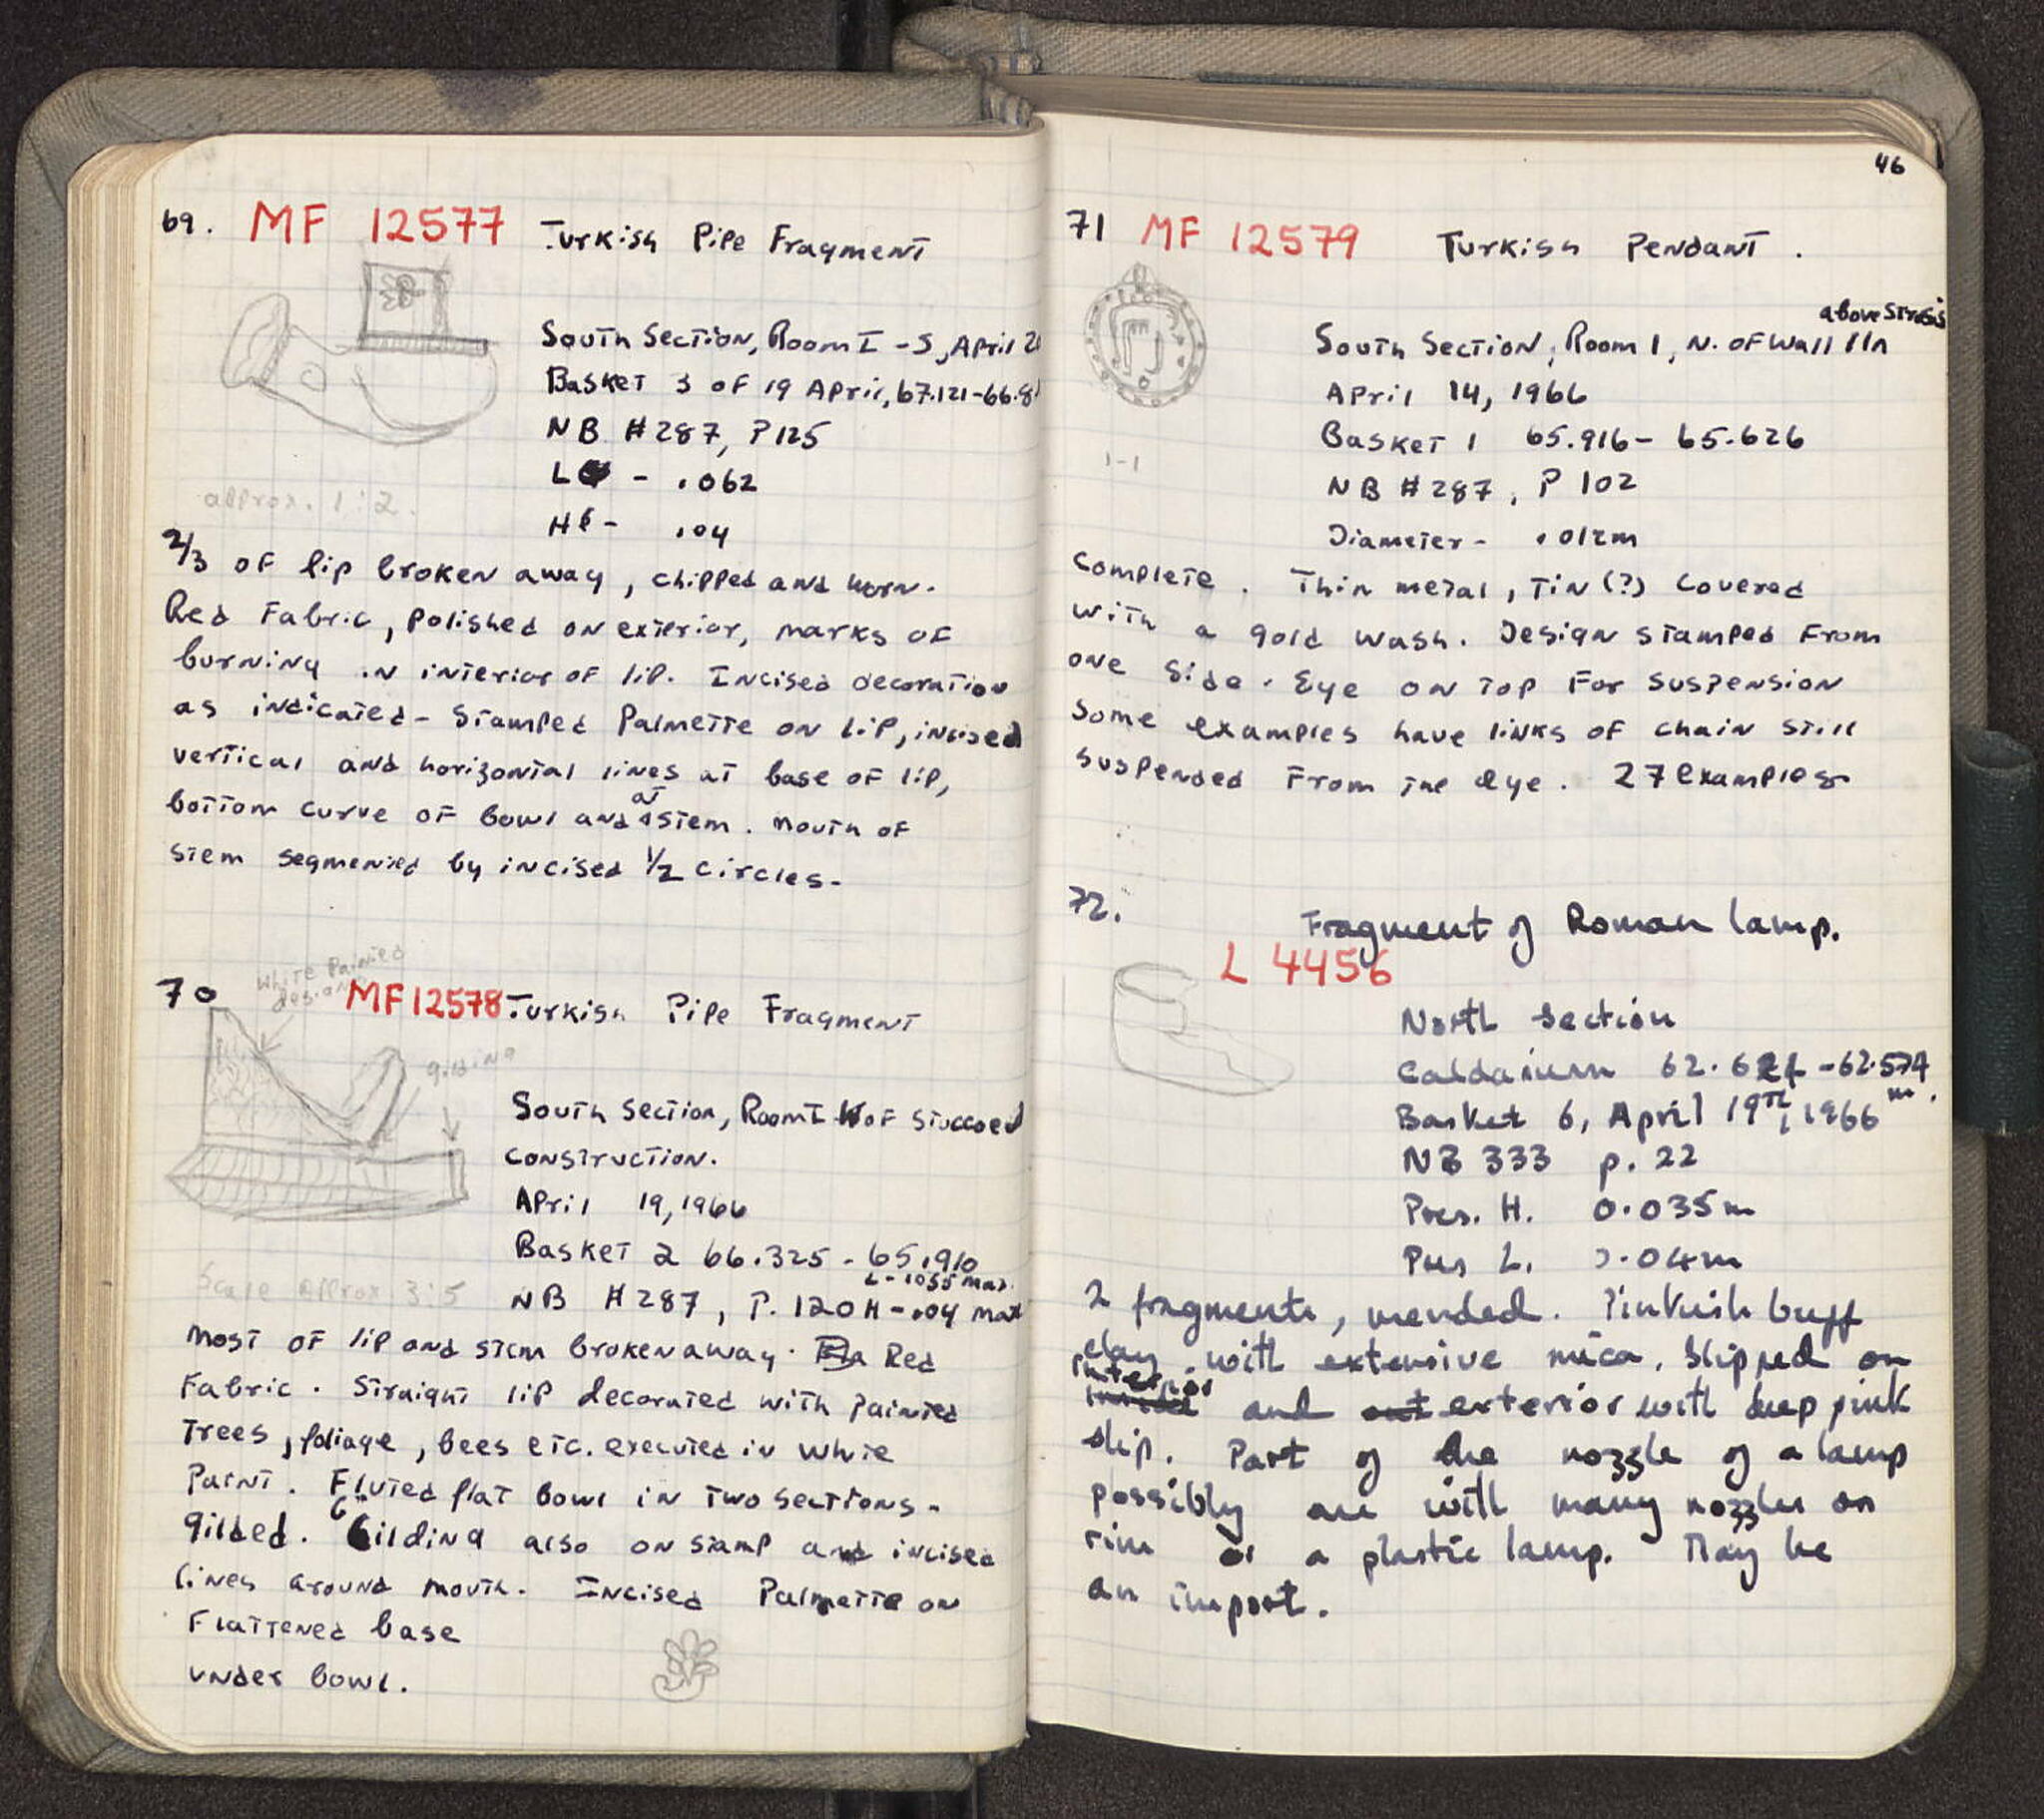 69. MF 12577 Turkish Pipe Fragment
South Section, Room I - S, April 2
Basket 3 of 19 April, 67.121-66.8
NB #287, P125
L - .062
H - .04
approx. 1:2.
2/3 of lip broken away, chipped and worn.
Red Fabric, Polished on exterior, marks of
burning in interior of lip. Incised decoration
as indicated - Stamped Palmette on lip, incised
vertical and horizontal lines at base of lip,
bottom curve of bowl and at stem. Mouth of
stem segmented by incised 1/2 circles.
White Painted
design
70 MF12578 Turkish Pipe Fragment
gilding
South Section, Room I W of Stuccoed
Construction.
April 19, 1966
Basket 2 66.325 - 65.910
L - .055 max.
NB #287, P. 120 H - .04 max
Scale Approx 3:5
Most of lip and stem broken away. Red
Fabric. Straight lip decorated with painted
Trees, foliage, bees etc. executed in white
Paint. Fluted flat bowl in two sections -
gilded. Gilding also on stamp and incised
lines around mouth. Incised Palmette on
Flattened base
under bowl.
46
71 MF 12579 Turkish Pendant.
above Strosis
South Section, Room 1, N. of Wall 11n
April 14, 1966
Basket 1 65.916 - 65.626
1-1
NB #287, P 102
Diameter - .012m
Complete. Thin metal, Tin (?) Covered
with a gold wash. Design stamped From
one side. Eye on top For suspension
Some examples have links of chain still
suspended From the eye. 27 examples
72. Fragment of Roman lamp.
L 4456
North Section
Caldarium 62.624 - 62.574 m.
Basket 6, April 19th, 1966
NB 333 p. 22
Pres. H. 0.035m
Pres L. 0.04m
2 fragments, mended. Pinkish buff
clay with extensive mica. Slipped on
interior
inside and out exterior with deep pink
slip. Part of the nozzle of a lamp
possibly one with many nozzles on
rim or a plastic lamp. May be
an import.